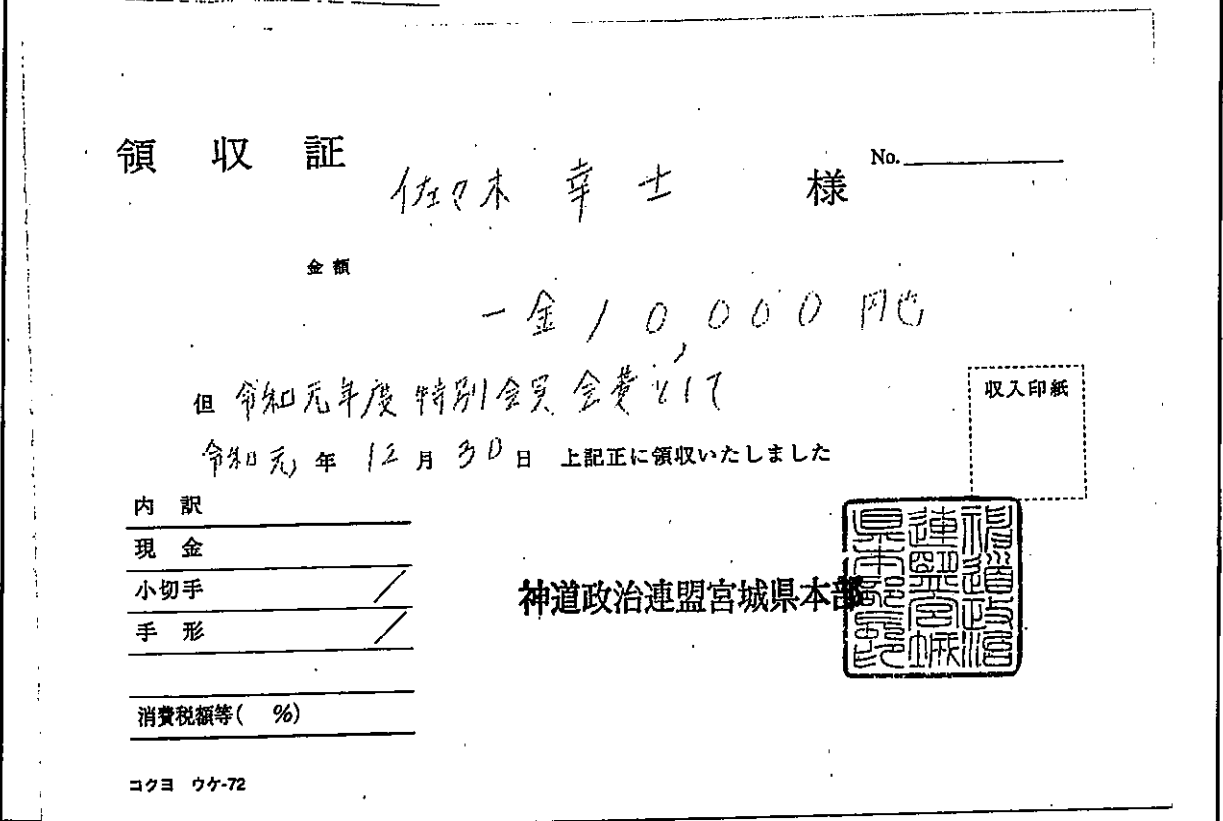 領収証
No.
佐々木 幸士 様
金額
一金10,000円也
但 令和元年度 特別会員 会費として
令和元年12月30日 上記正に領収いたしました
収入印紙
内訳
現金
小切手 /
手形 /
消費税額等( %)
神道政治連盟宮城県本部
神道政治
連盟宮城
県本部長印
コクヨ ウケ-72